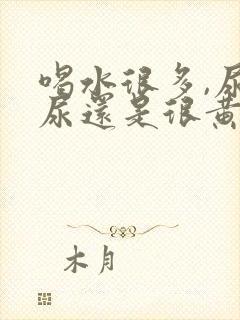 喝水很多,尿
尿還是很黃
木月